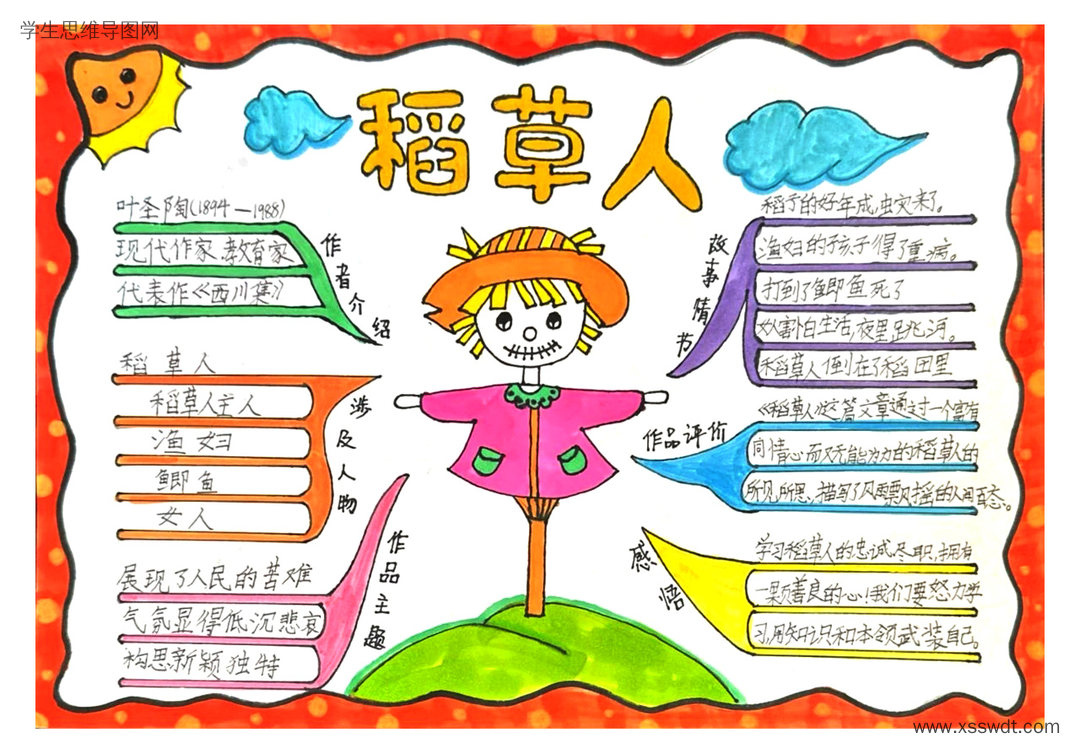 学生思维导图网
稻草人
叶圣陶(1894—1988)
现代作家、教育家
代表作《西川集》
作者介绍
稻草人
稻草人主人
渔妇
鲫鱼
女人
涉及人物
展现了人民的苦难
气氛显得低沉悲哀
构思新颖独特
作品主题
故事情节
稻子的好年成,虫灾来了。
渔妇的孩子得了重病。
打到了鲫鱼死了
女人害怕生活,夜里跳河。
稻草人倒在了稻田里
作品评价
《稻草人》这篇文章通过一个富有
同情心而又无能为力的稻草人的
所见、所思、描写了风雨飘摇的人间百态。
感悟
学习稻草人的忠诚、尽职,拥有
一颗善良的心!我们要努力学
习,用知识和本领武装自己。
www.xsswdt.com